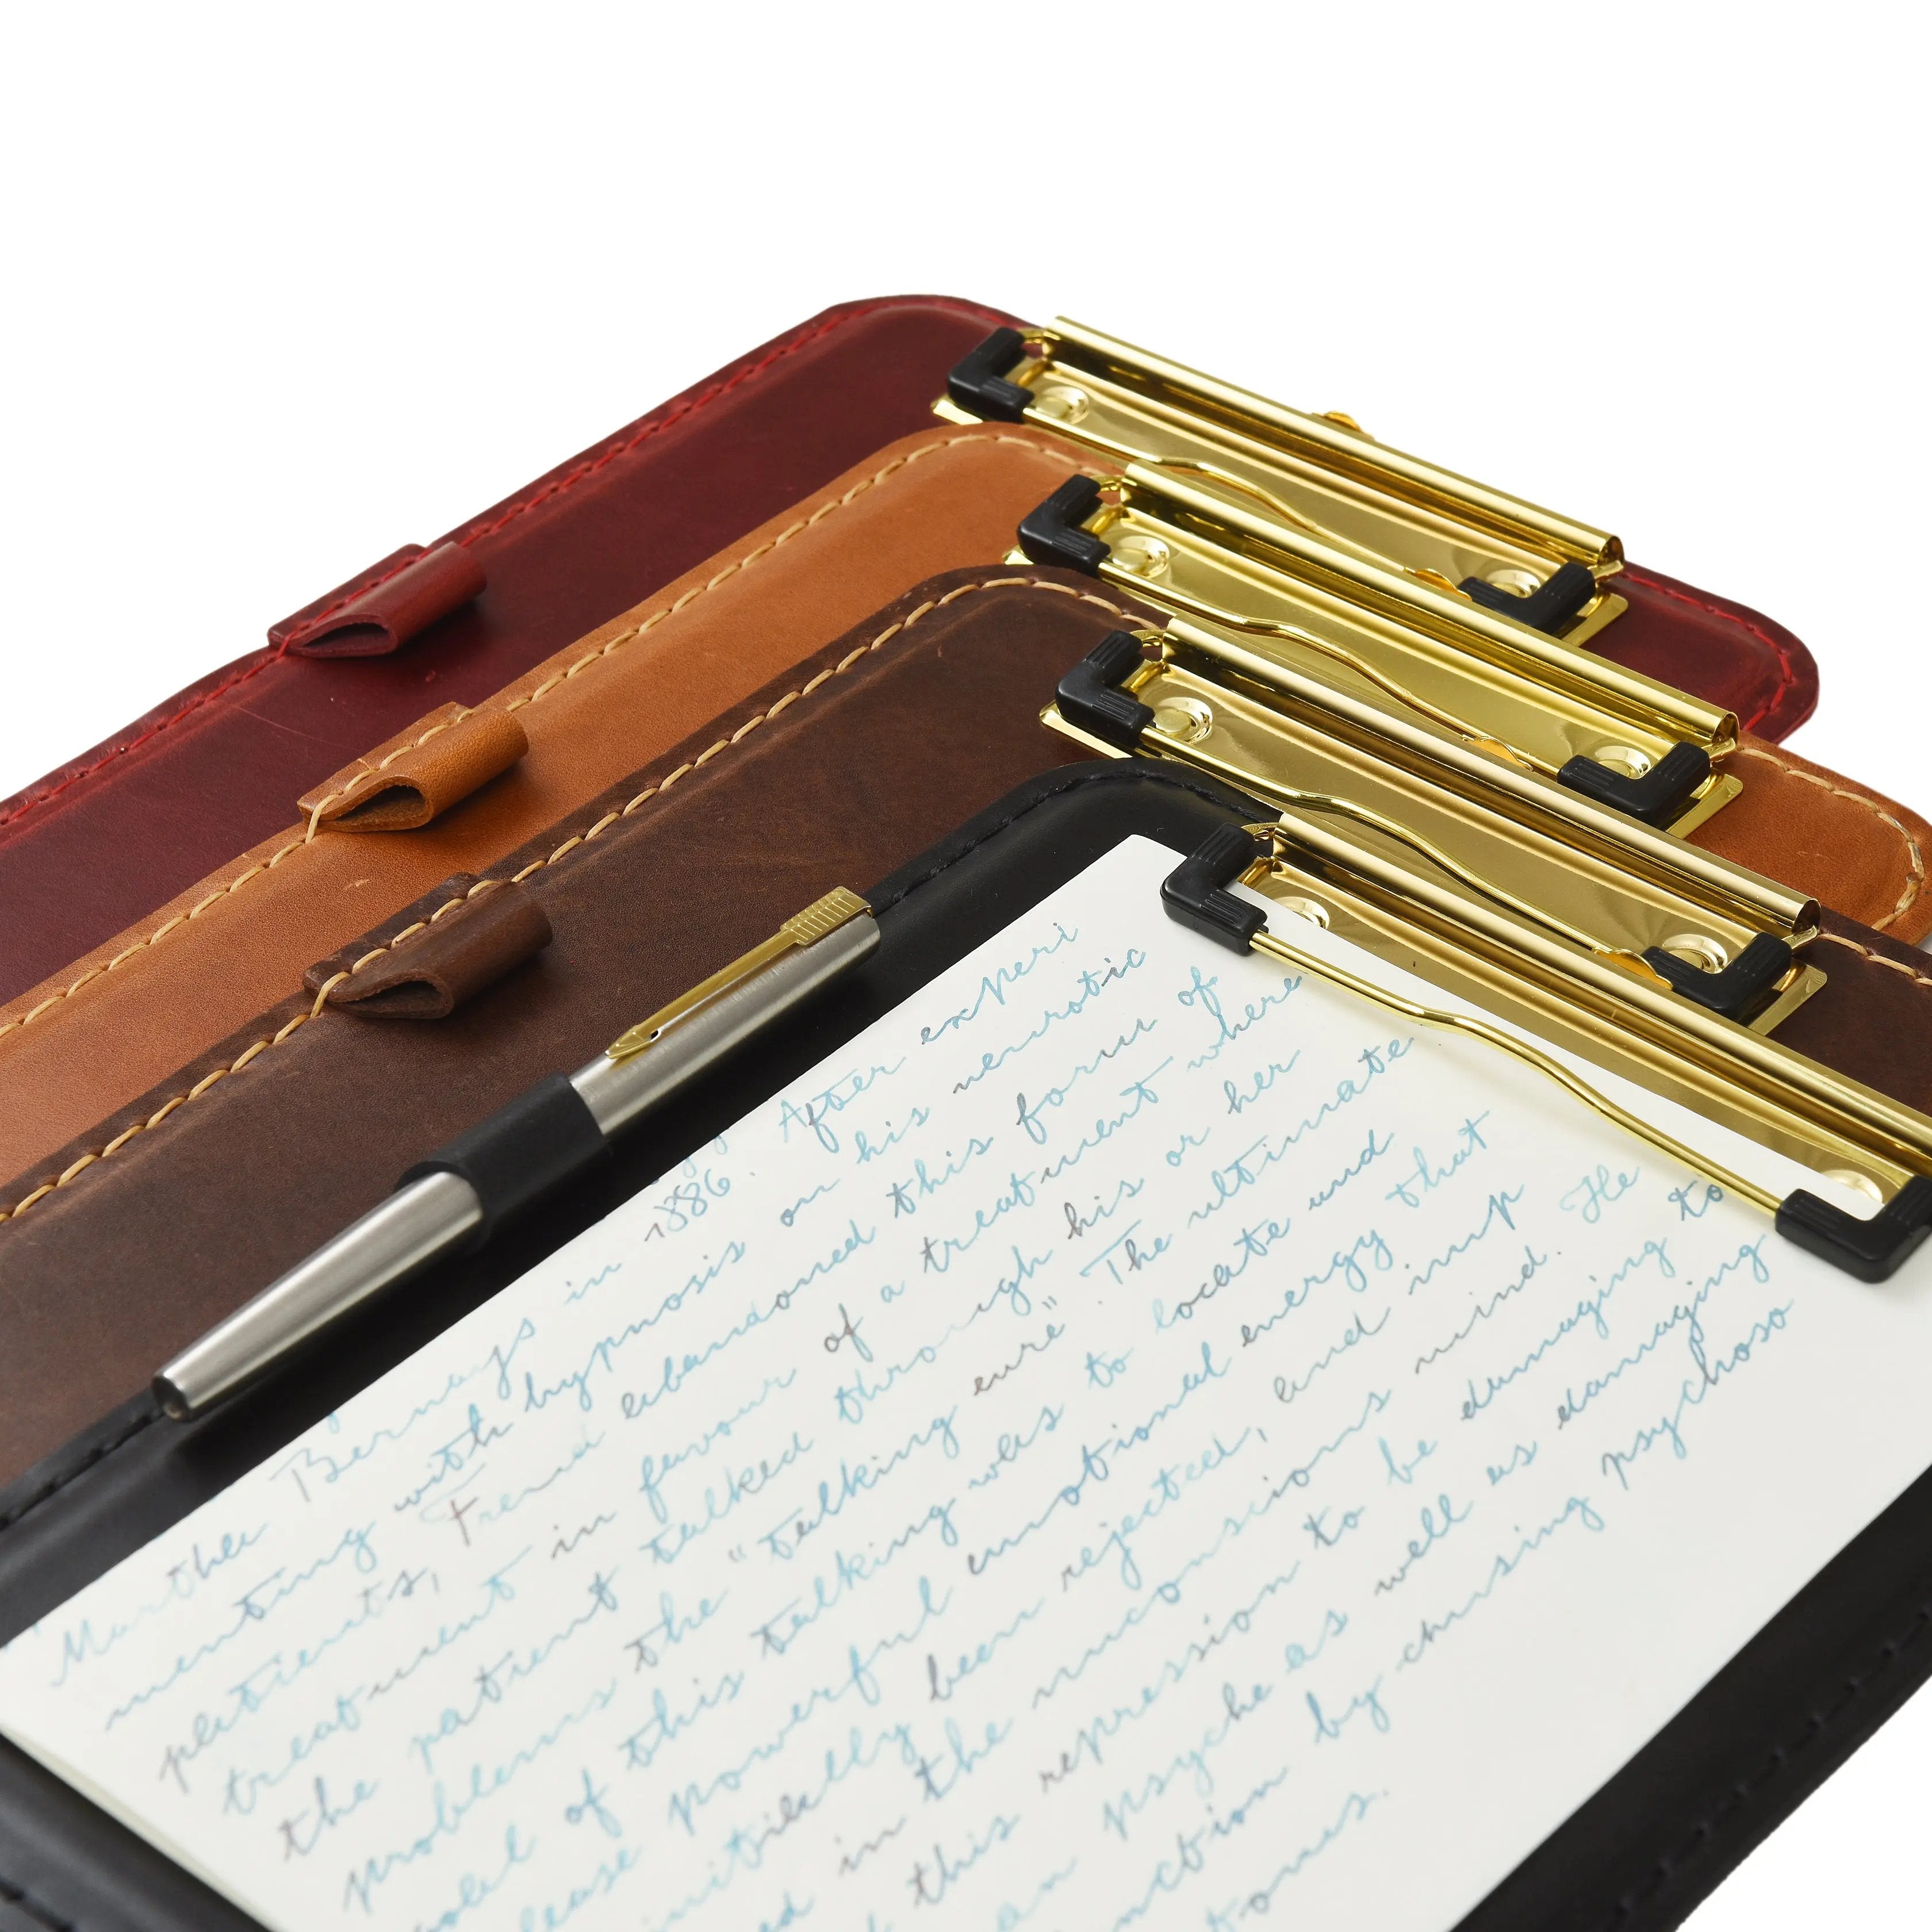 Martha Bernays in 1886. After experi
menting with hypnosis on his neurotic
patients, Freud abandoned this form of
treatment in favour of a treatment where
the patient talked through his or her
problems the "talking cure". The ultimate
goal of this talking was to locate and
release powerful emotional energy that
initially been rejected, and imp
in the unconscious mind. He
this repression to be damaging to
an psyche as well as damaging
nction by causing psychoso
toms.